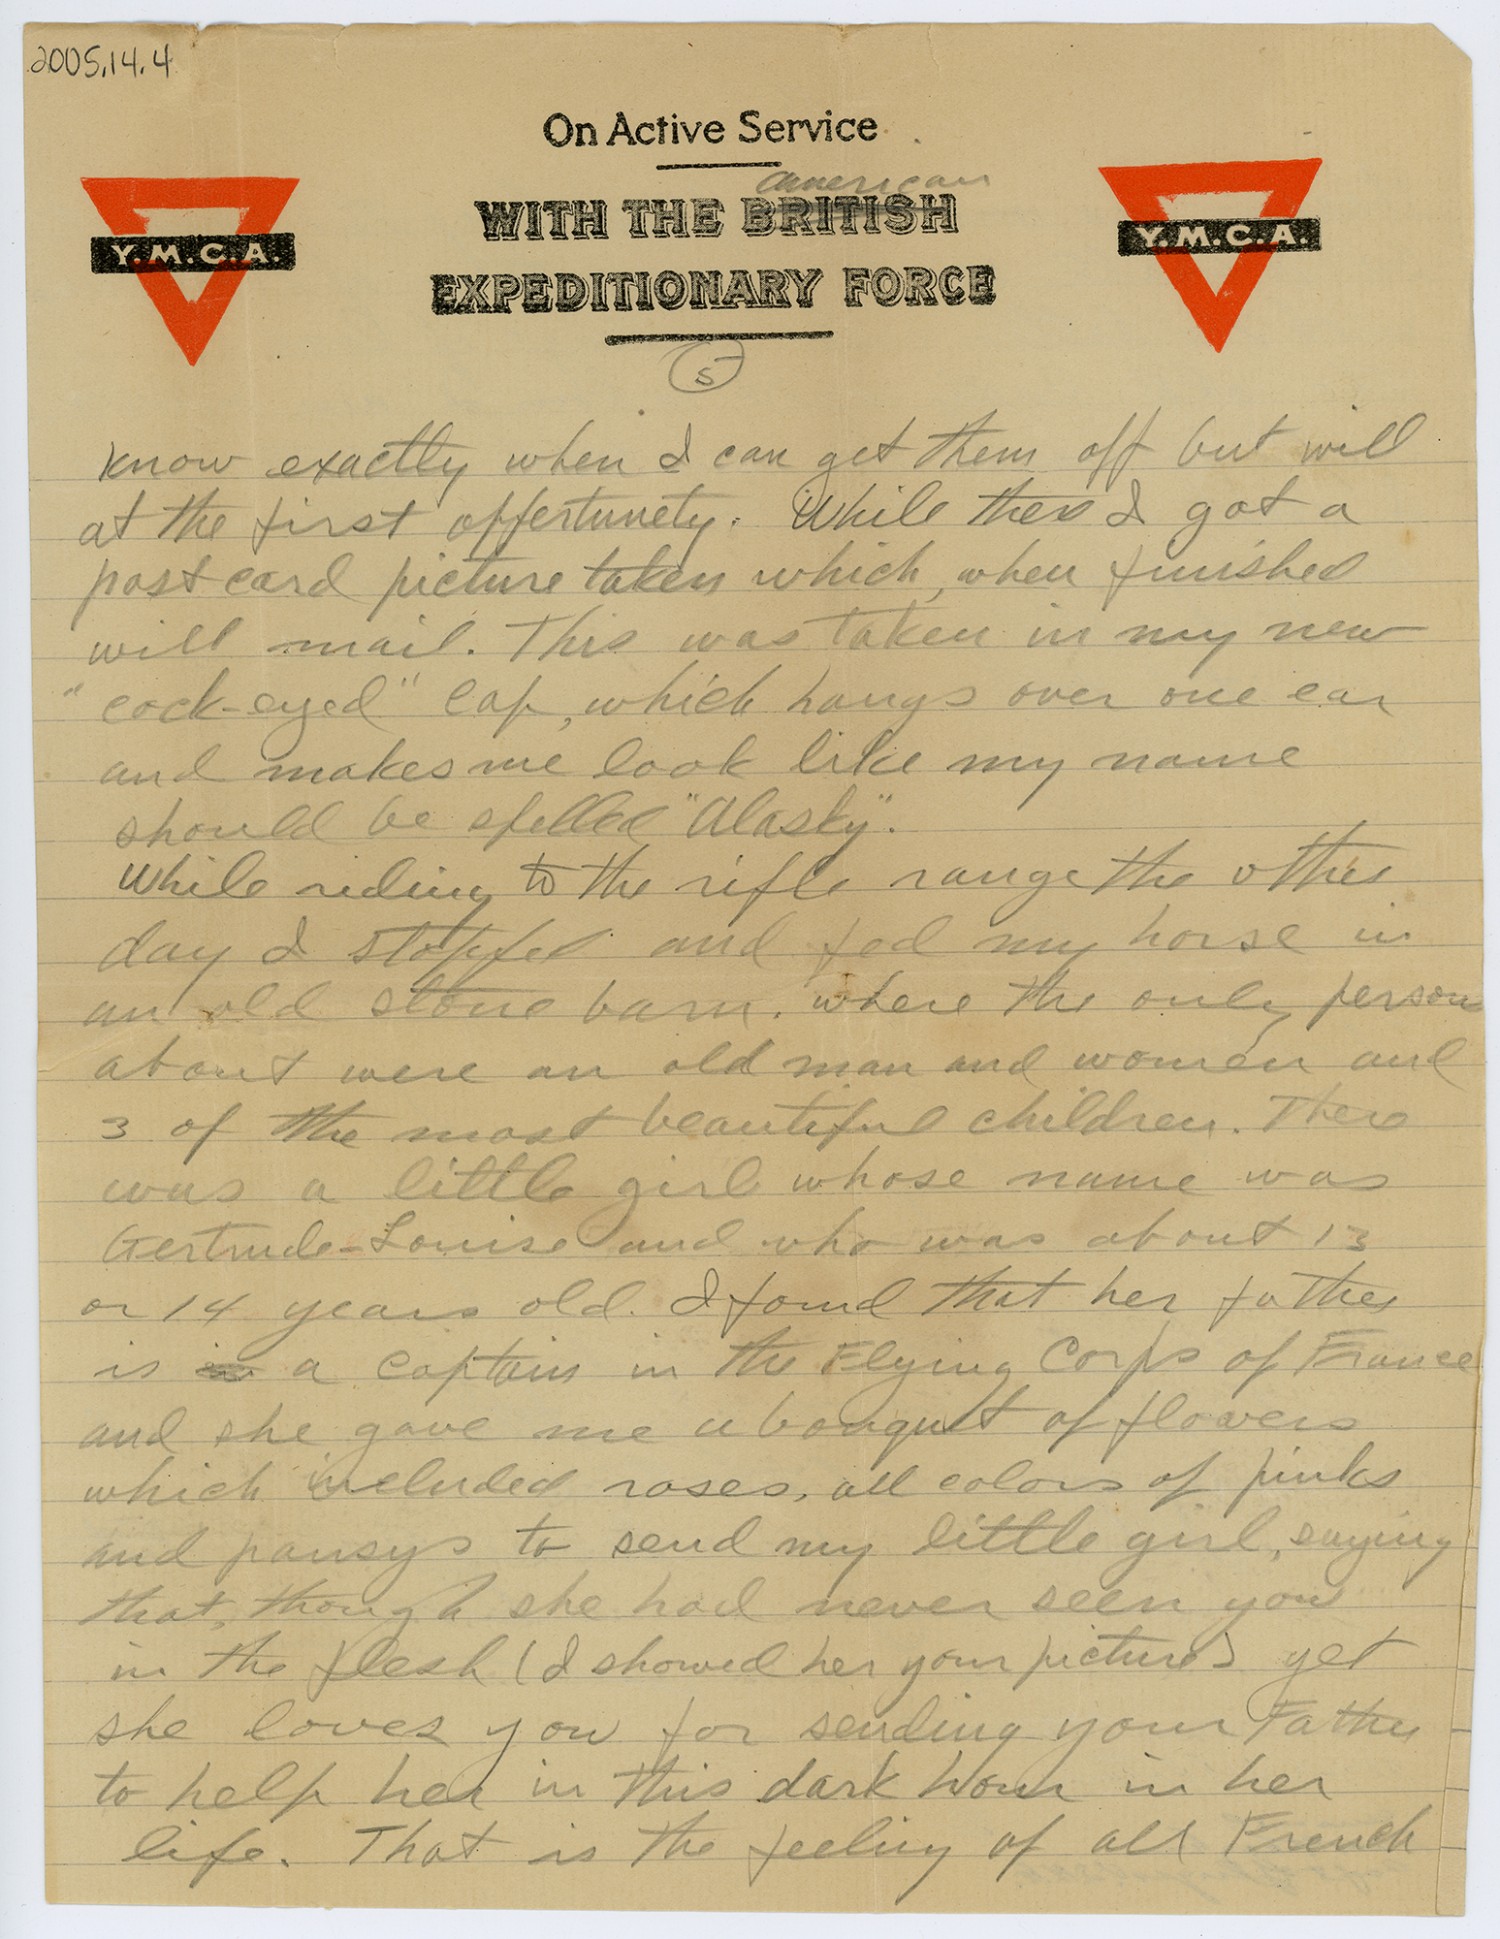 2005.14.4
On Active Service
american
WITH THE BRITISH
EXPEDITIONARY FORCE
Y.M.C.A.
Y.M.C.A.
5
know exactly when I can get them off but will
at the first oppertunety. While there I got a
post card picture taken which, when finished
will mail. This was taken in my new
"cock-eyed" cap, which hangs over one ear
and makes me look like my name
should be spelled "Alasky".
While riding to the rifle range the other
day I stopped and fed my horse in
an old stone barn. where the only person
about were an old man and women and
3 of the most beautiful children. There
was a little girl whose name was
Gertrude-Louise and who was about 13
or 14 years old. I found that her father
is in a Captain in the Flying Corps of France
and she gave me a bouquet of flowers
which included roses, all colors of pinks
and pansys to send my little girl, saying
that, though she had never seen you
in the flesh (I showed her your picture) yet
she loves you for sending your Father
to help her in this dark hour in her
life. That is the feeling of all French